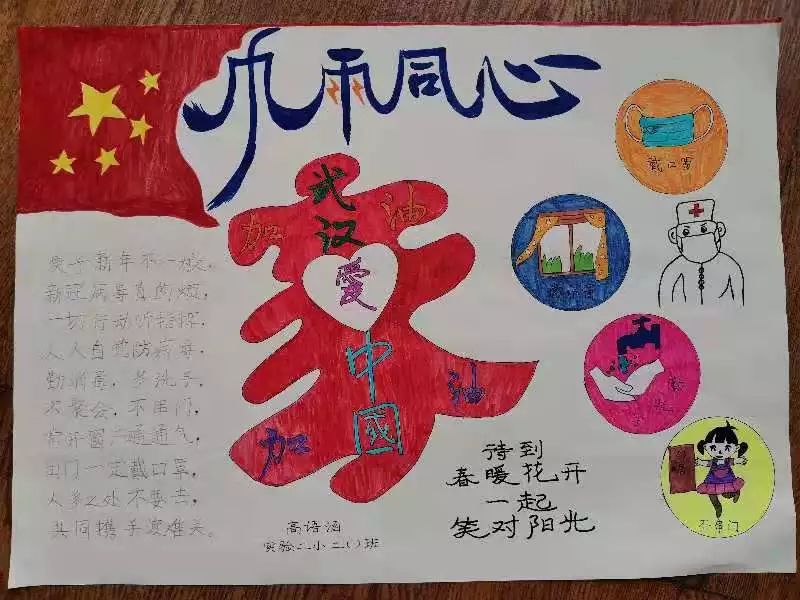 风雨同心
加油
武汉
爱
中國
加油
庚子新年不一般,
新冠病毒真的烦,
一切行动听指挥,
人人自觉防病毒,
勤消毒,多洗手,
不聚会,不串门,
常开窗,通通气,
出门一定戴口罩,
人多之处不要去,
共同携手渡难关。
戴口罩
勤洗手
不串门
待到
春暖花开
一起
笑对阳光
高语涵
实验二小二(1)班